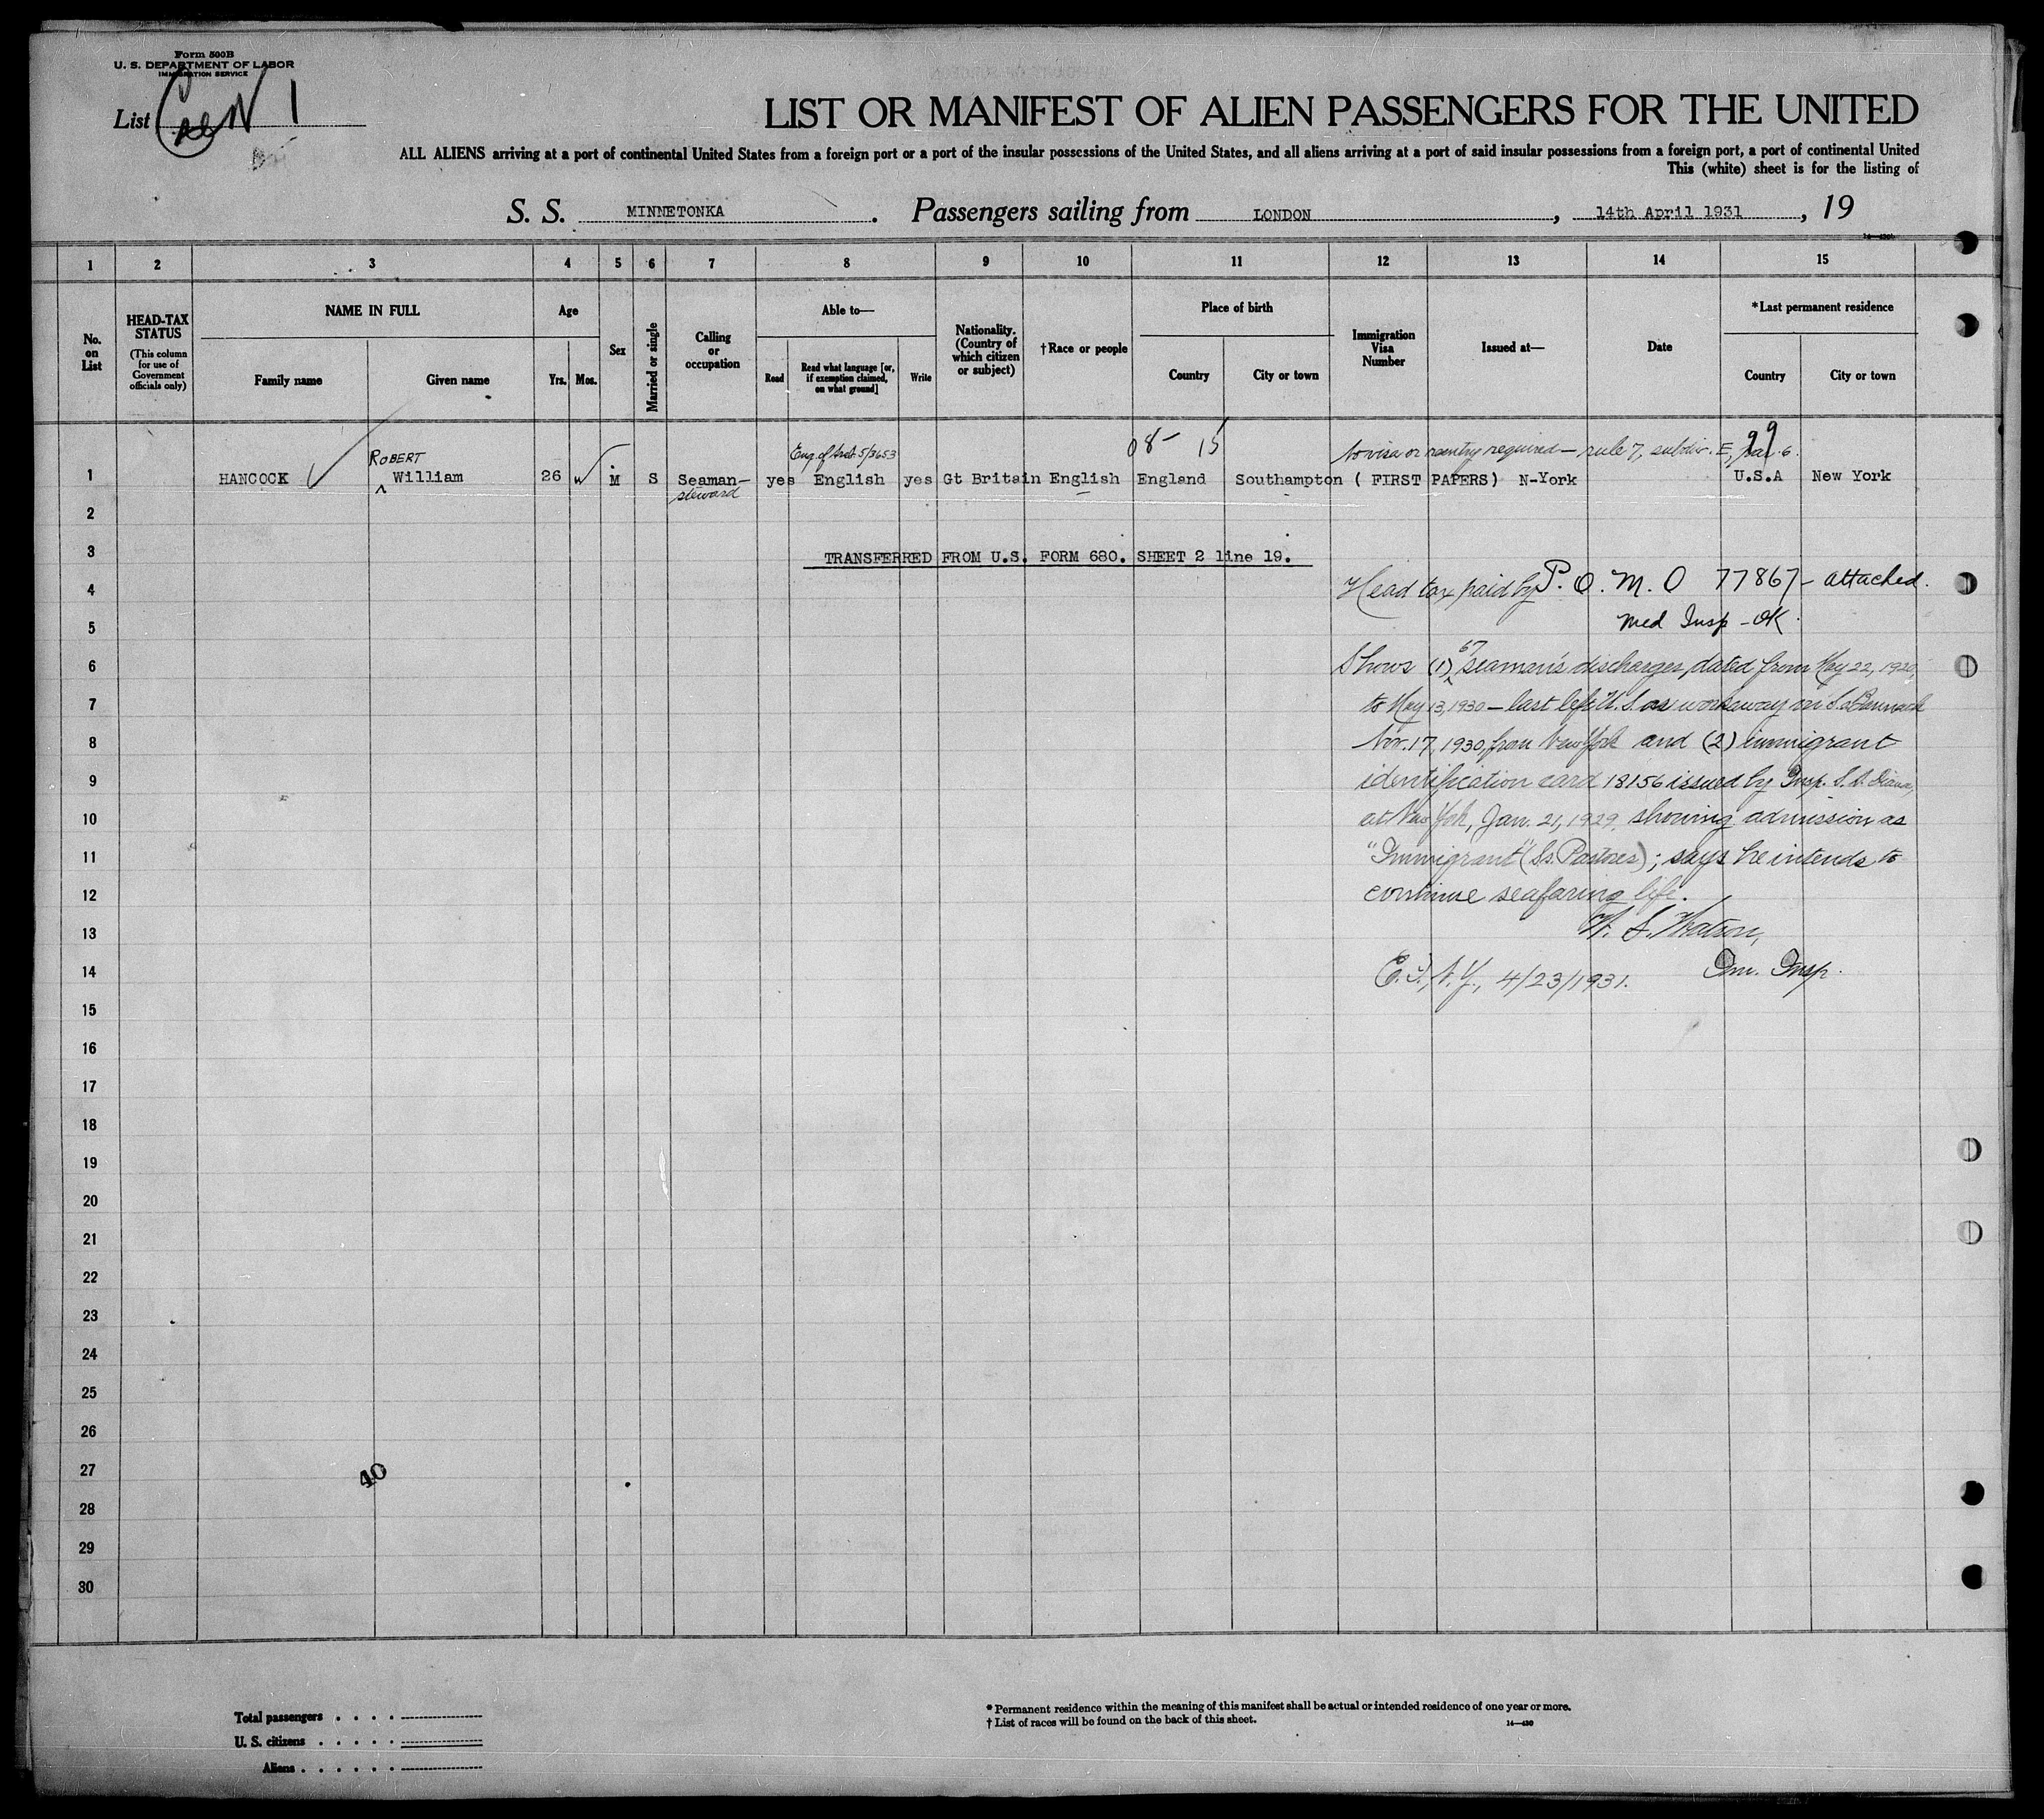 Form 500B
U. S. DEPARTMENT OF LABOR
IMMIGRATION SERVICE
List 1
LIST OR MANIFEST OF ALIEN PASSENGERS FOR THE UNITED
ALL ALIENS arriving at a port of continental United States from a foreign port or a port of the insular possessions of the United States, and all aliens arriving at a port of said insular possessions from a foreign port, a port of continental United
This (white) sheet is for the listing of
S. S. MINNETONKA. Passengers sailing from LONDON, 14th April 1931, 19
1 2 3 4 5 6 7 8 9 10 11 12 13 14 15
No. on List
HEAD-TAX STATUS
(This column for use of Government officials only)
NAME IN FULL
Family name Given name
Age
Yrs. Mos.
Sex
Married or single
Calling or occupation
Able to—
Read Read what language [or, if exemption claimed, on what ground] Write
Nationality. (Country of which citizen or subject)
†Race or people
Place of birth
Country City or town
Immigration Visa Number
Issued at—
Date
*Last permanent residence
Country City or town
08- 15 99
No visa or reentry required — rule 7, subdiv. E, par. 6.
ROBERT
1 HANCOCK William 26 M S Seaman- yes English yes Gt Britain English England Southampton ( FIRST PAPERS) N-York U.S.A New York
steward
2
3 TRANSFERRED FROM U.S. FORM 680. SHEET 2 line 19.
4 Head tax paid by P. O. M. O 77867 - attached.
5 Med Insp - OK.
6 Shows (1) 67 seaman's discharges, dated from May 22, 1920,
7 to May 13, 1930 — last left U.S. as workaway on
8 Nov. 17, 1930, from New York and (2) immigrant
9 identification card 18156 issued by Insp.
10 at New York, Jan. 21, 1929, showing admission as
11 "Immigrant" (Ss. Pastores); says he intends to
12 continue seafaring life.
13 W. S. Watson,
14 E. I., N.Y., 4/23/1931. Im. Insp.
15
16
17
18
19
20
21
22
23
24
25
26
27 40
28
29
30
Total passengers . . . .
U. S. citizens . . . . .
Aliens . . . . . .
* Permanent residence within the meaning of this manifest shall be actual or intended residence of one year or more.
† List of races will be found on the back of this sheet.
14—430